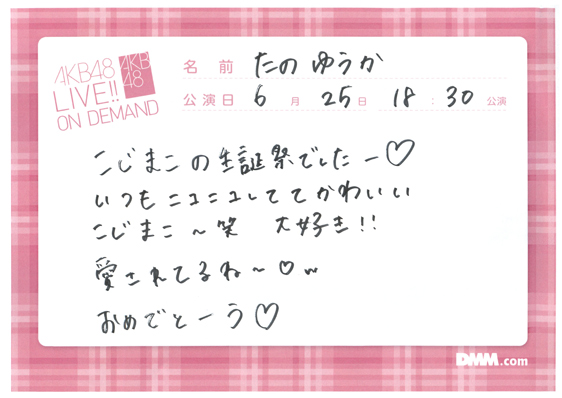 AKB48
LIVE!!
ON DEMAND
AKB
48
名前 たのゆうか
公演日 6月 25日 18:30 公演
こじまこの生誕祭でしたー♡
いつもニコニコしててかわいい
こじまこ～笑 大好き!!
愛されてるね～♡w
おめでとーう♡
DMM.com